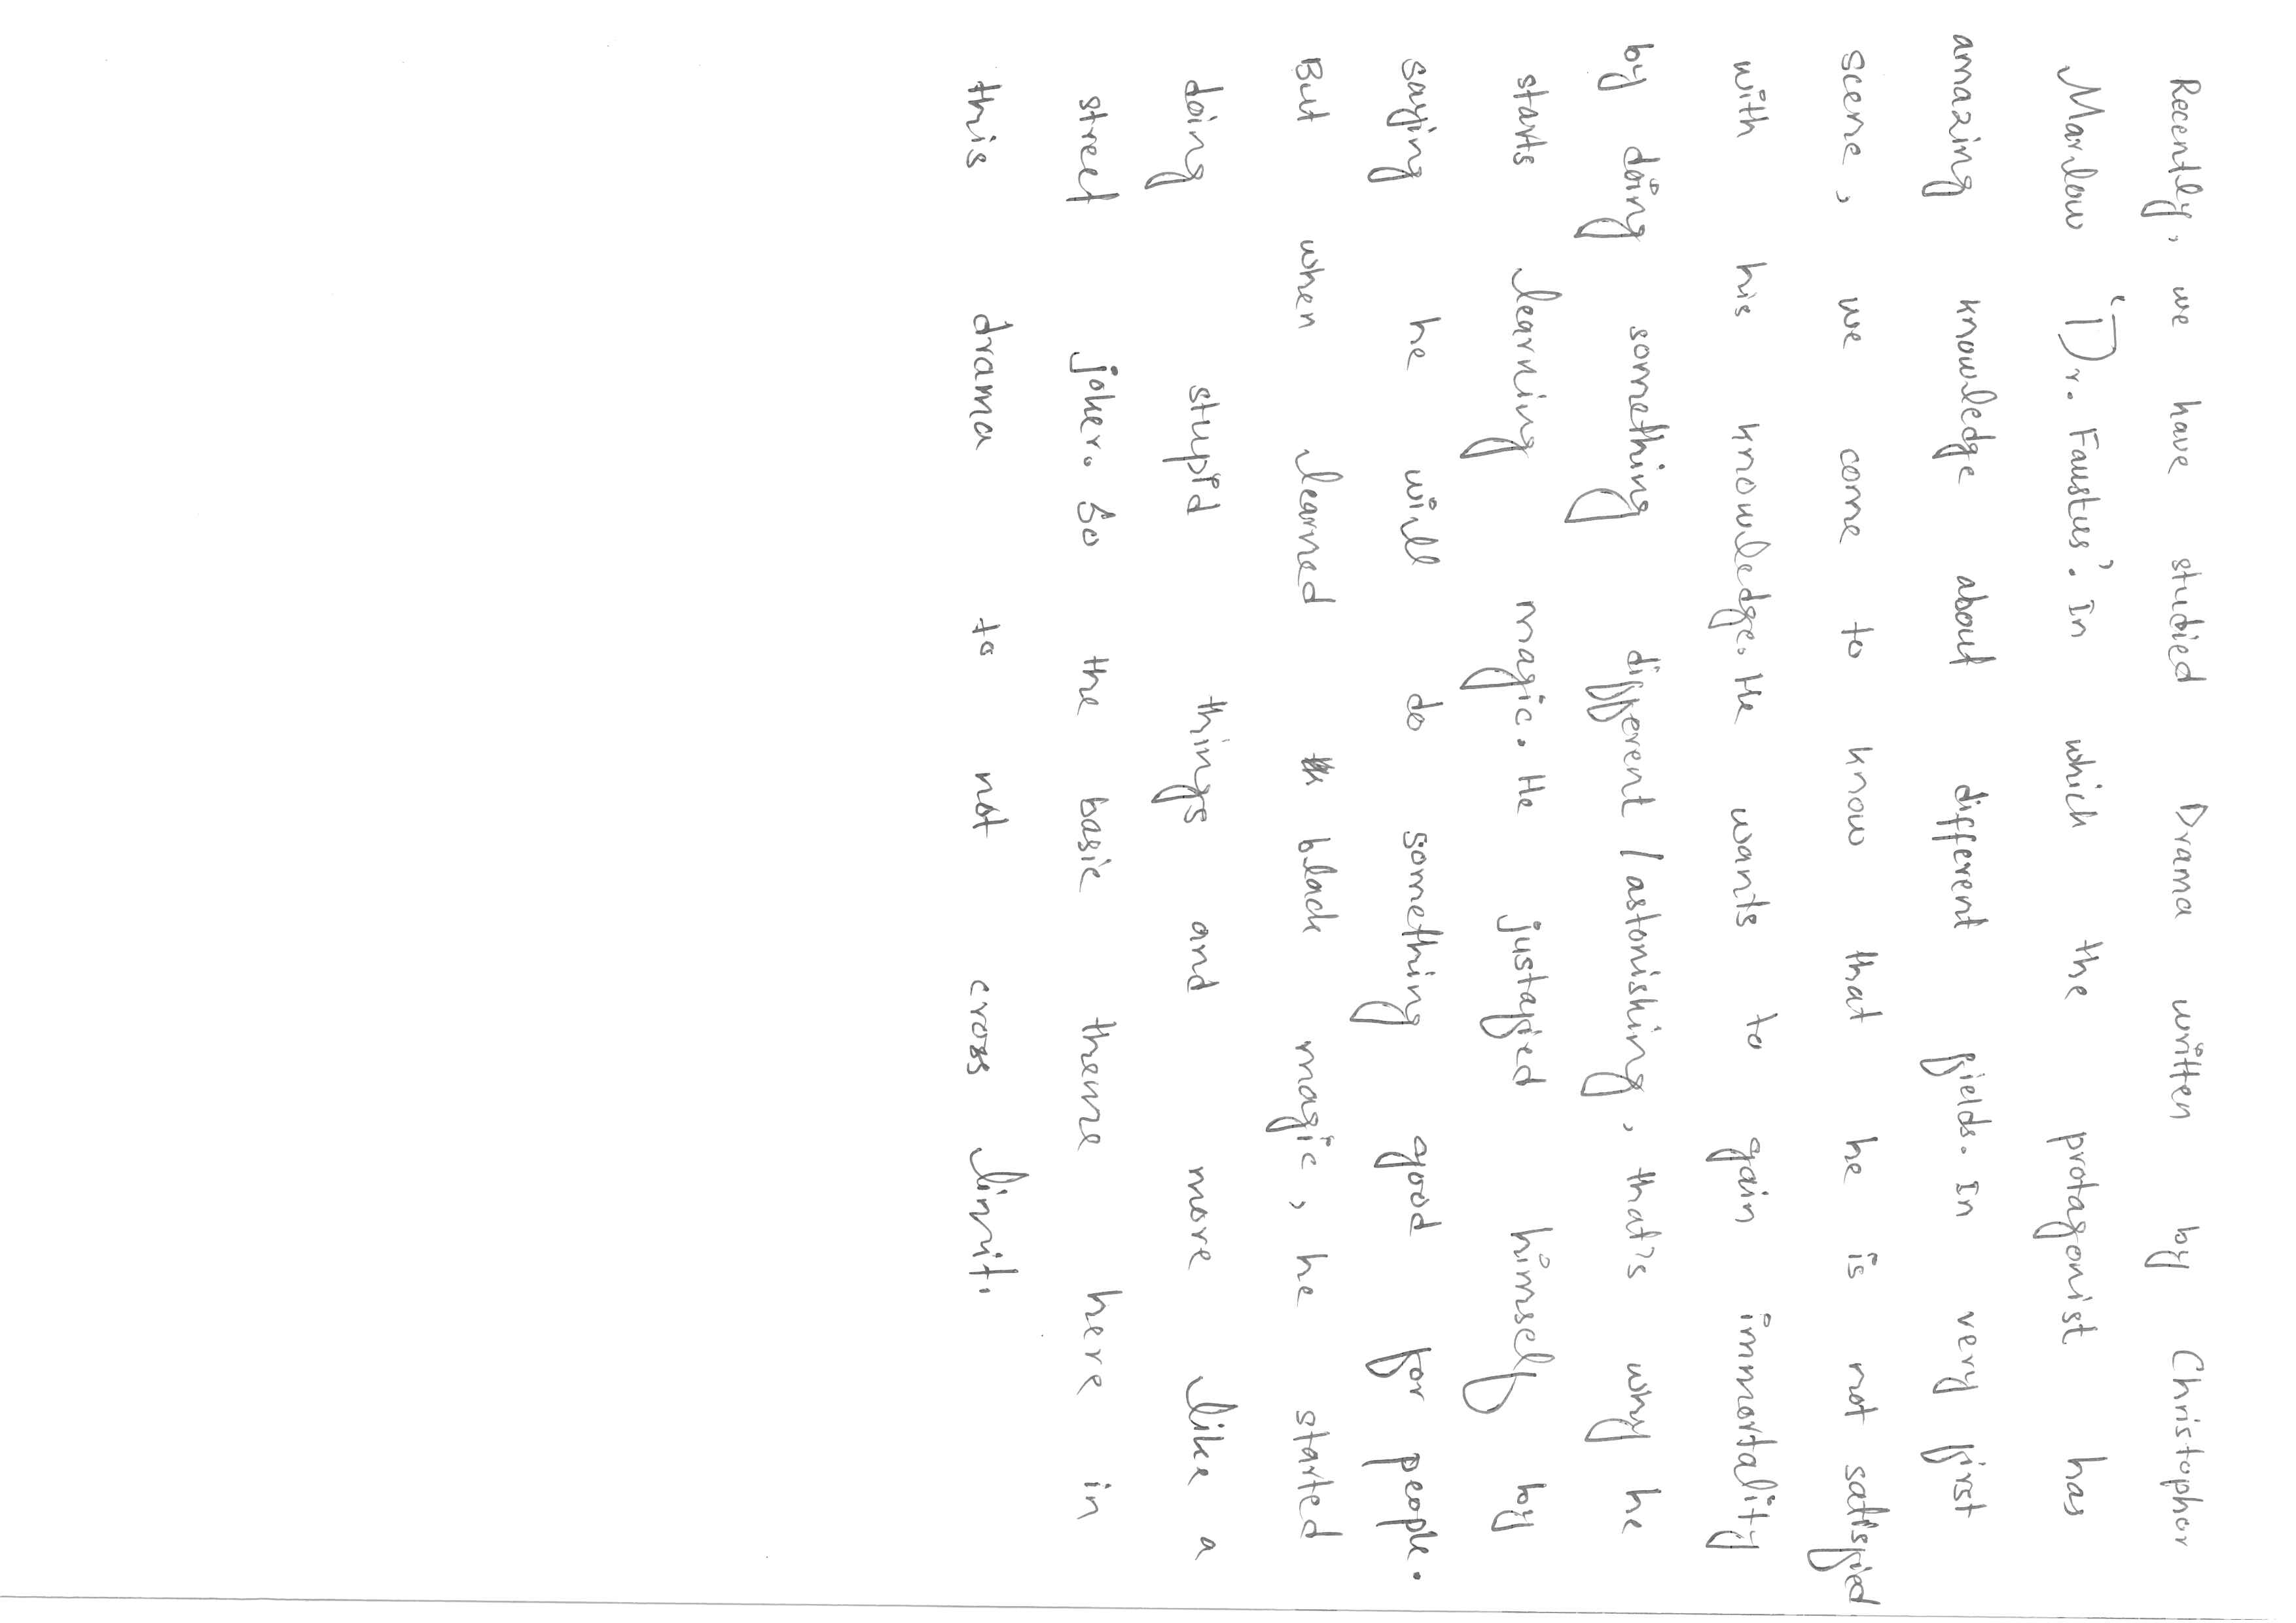 Recently, we have studied Drama written by Christophor
Marlow 'Dr. Faustus'. In which the protagonist has
amazing knowledge about different fields. In very first
scene, we come to know that he is not satisfied
with his knowledge. He wants to gain immortality
by doing something different / astonishing, that's why he
starts learning magic. He justafied himself by
saying he will do something good for people.
But when learned black magic, he started
doing stupid things and more like a
street joker. So the basic theme here in
this drama to not cross limit.